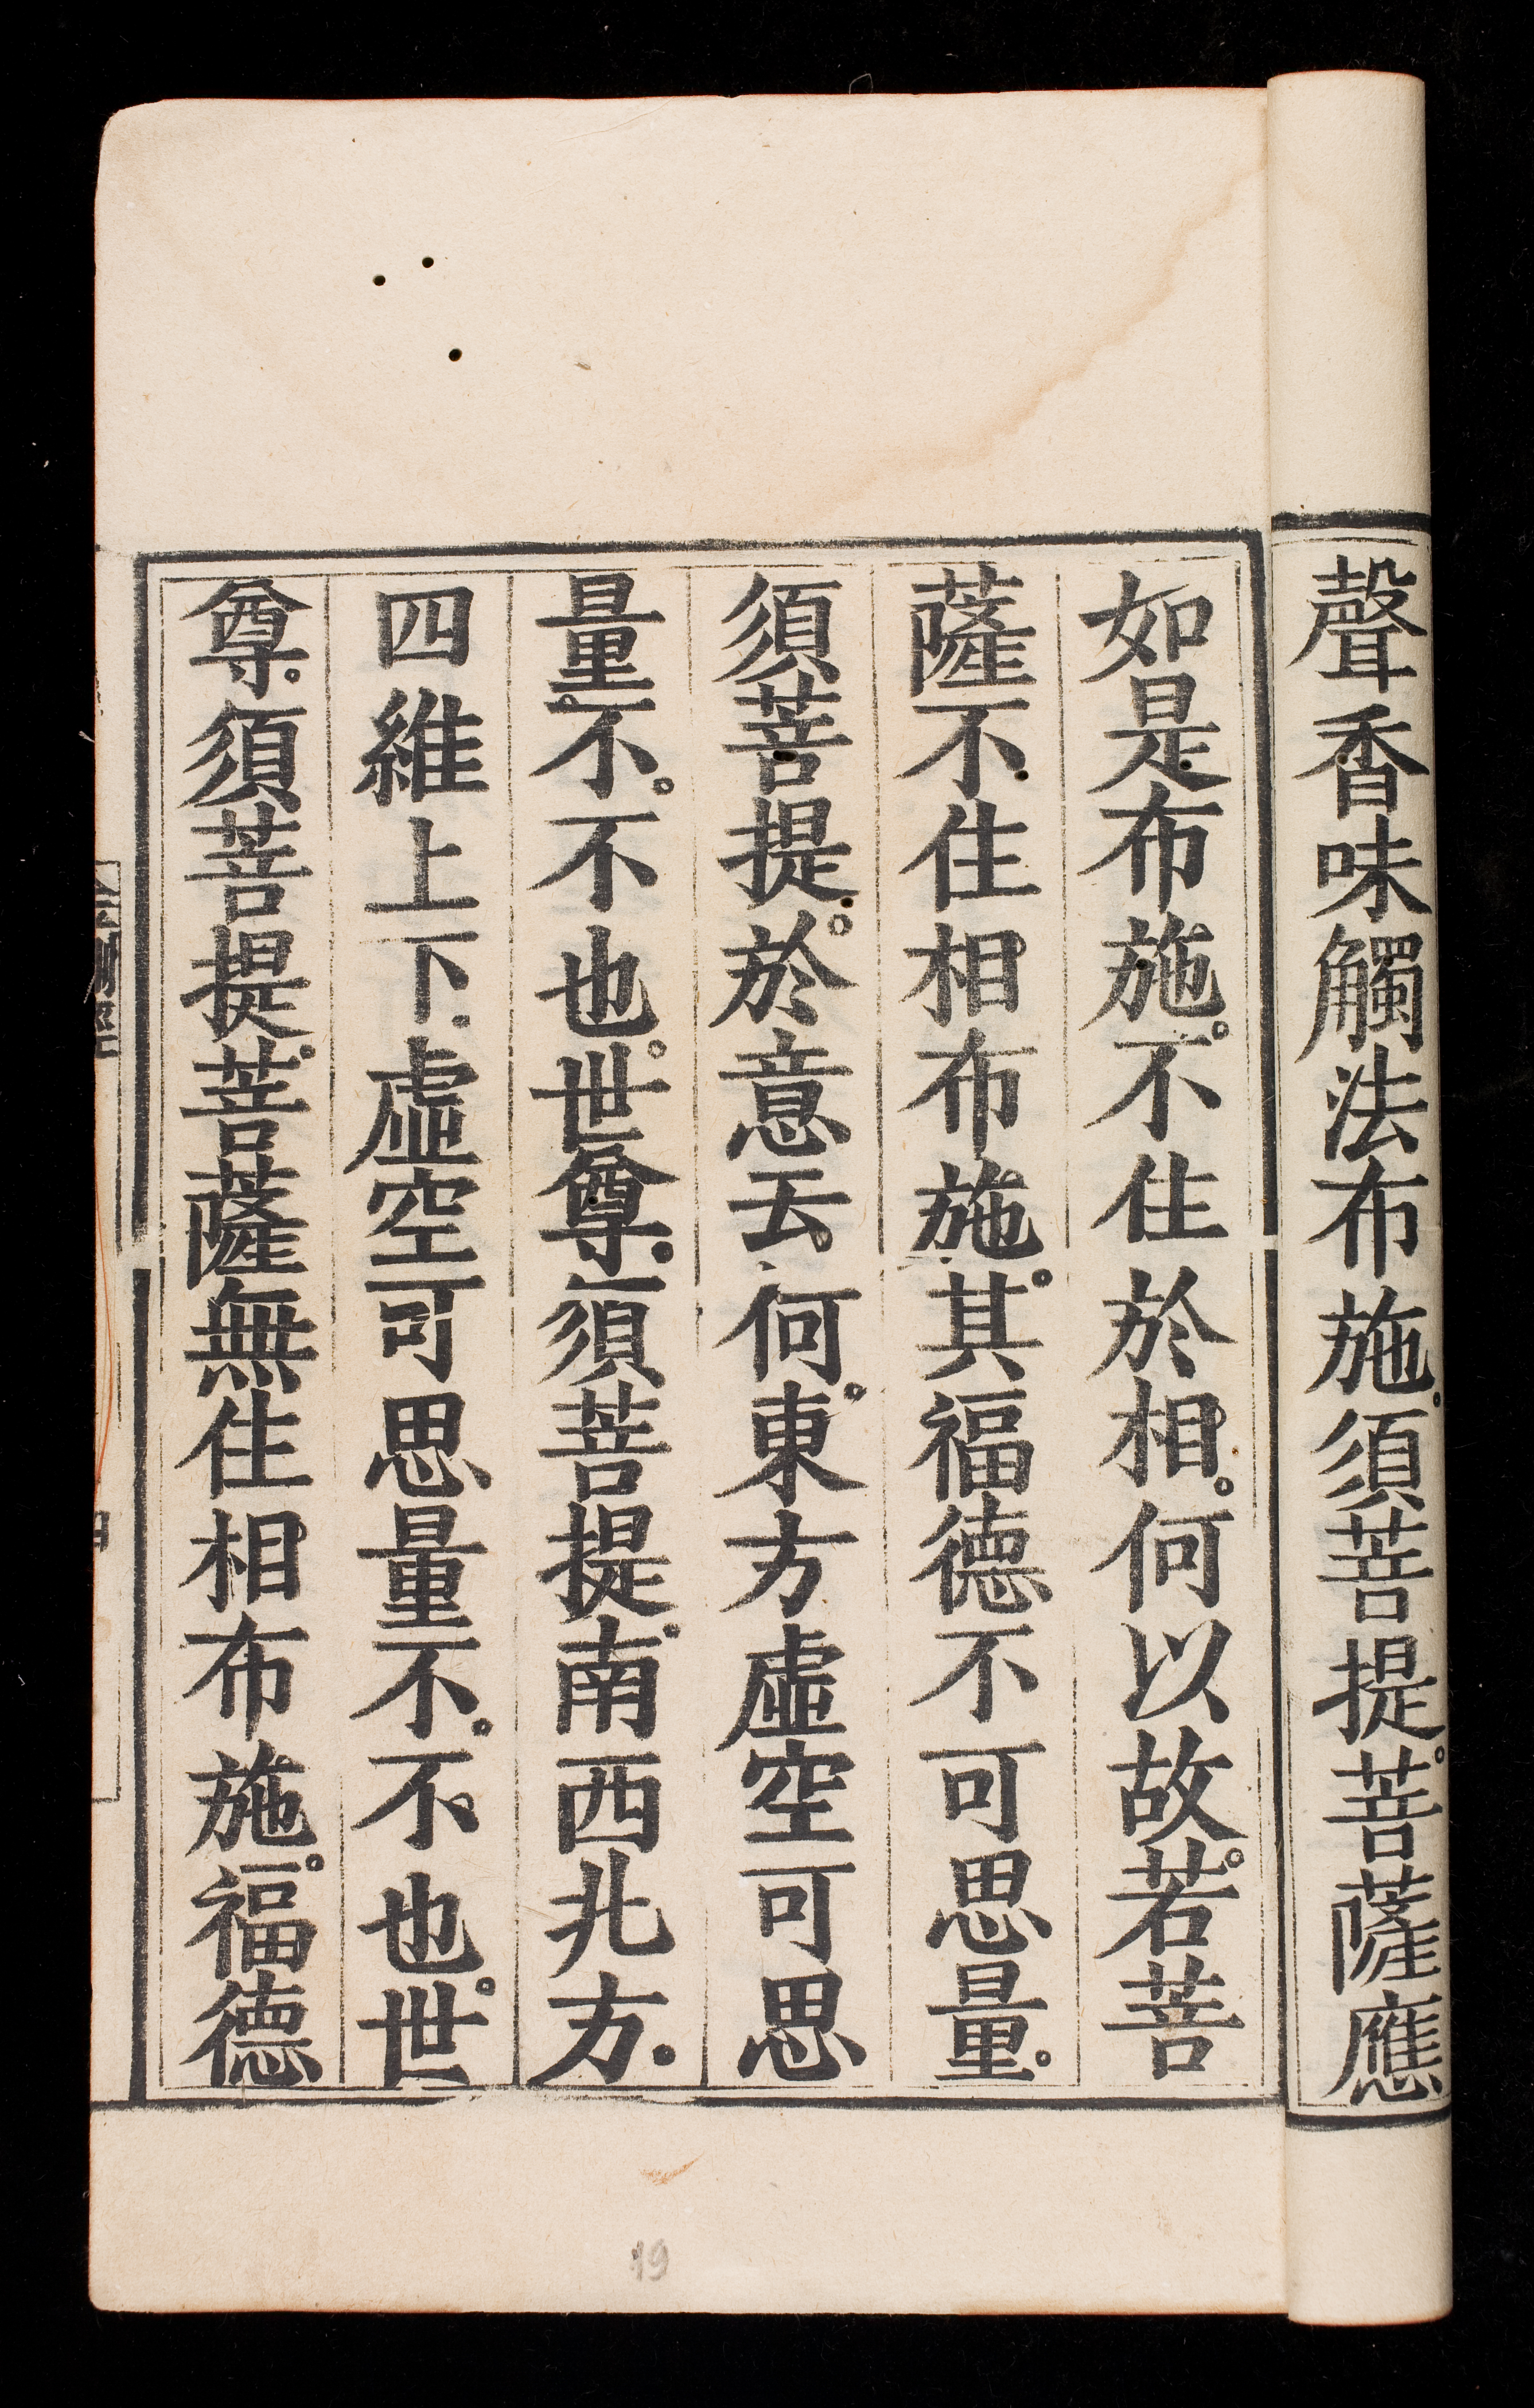 聲香味觸法布施。須菩提。菩薩應
如是布施。不住於相。何以故。若菩
薩不住相布施。其福德不可思量。
須菩提。於意云何。東方虛空可思
量。不。不也。世尊。須菩提。南西北方。
四維上下。虛空可思量不。不也。世
尊。須菩提。菩薩無住相布施。福德
19